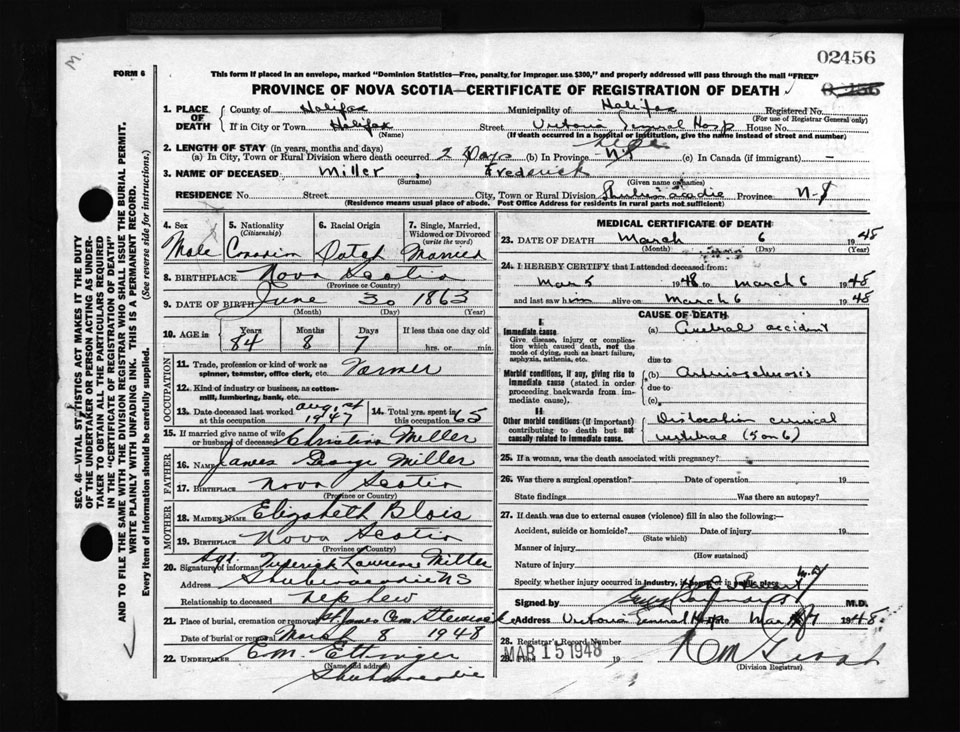 02456
FORM 6
This form if placed in an envelope, marked "Dominion Statistics—Free, penalty for improper use $300," and properly addressed will pass through the mail "FREE"
PROVINCE OF NOVA SCOTIA—CERTIFICATE OF REGISTRATION OF DEATH
1. PLACE OF DEATH County of Halifax Municipality of Halifax Registered No.
(For use of Registrar General only)
If in City or Town Halifax Street Victoria General Hosp House No.
(Name) (If death occurred in a hospital or institution, give the name instead of street and number)
2. LENGTH OF STAY (in years, months and days)
(a) In City, Town or Rural Division where death occurred 2 Days (b) In Province Life (c) In Canada (if immigrant) -
3. NAME OF DECEASED Miller Frederick
(Surname) (Given name or names)
RESIDENCE No. Street City, Town or Rural Division Shubenacadie Province N-S
(Residence means usual place of abode. Post Office Address for residents in rural parts not sufficient)
4. Sex 5. Nationality (Citizenship) 6. Racial Origin 7. Single, Married, Widowed or Divorced (write the word)
Male Canadian Dutch Married
8. BIRTHPLACE Nova Scotia
(Province or Country)
9. DATE OF BIRTH June 30 1863
(Month) (Day) (Year)
10. AGE in Years Months Days If less than one day old
84 8 7 hrs. or min.
OCCUPATION
11. Trade, profession or kind of work as spinner, teamster, office clerk, etc. Farmer
12. Kind of industry or business, as cotton-mill, lumbering, bank, etc.
13. Date deceased last worked at this occupation 1947 14. Total yrs. spent in 65
15. If married give name of wife or husband of deceased Christina Miller
FATHER
16. NAME James George Miller
17. BIRTHPLACE Nova Scotia
(Province or Country)
MOTHER
18. MAIDEN NAME Elizabeth Blois
19. BIRTHPLACE Nova Scotia
(Province or Country)
20. Signature of informant Sgt. Frederick Lawrence Miller
Address Shubenacadie NS
Relationship to deceased nephew
21. Place of burial, cremation or removal St James Cem Stewiacke
Date of burial or removal March 8 1948
22. UNDERTAKER E.M. Ettinger
(Name and address)
Shubenacadie
MEDICAL CERTIFICATE OF DEATH
23. DATE OF DEATH March 6 1948
(Month) (Day) (Year)
24. I HEREBY CERTIFY that I attended deceased from:
Mar 5 1948 to March 6 1948
and last saw him alive on March 6 1948
CAUSE OF DEATH
I.
Immediate cause (a) Cerebral accident
Give disease, injury or complication which caused death, not the mode of dying, such as heart failure, asphyxia, asthenia, etc.
due to
Morbid conditions, if any, giving rise to immediate cause (stated in order proceeding backwards from immediate cause). (b) Arteriosclerosis
due to
(c)
II
Other morbid conditions (if important) contributing to death but not causally related to immediate cause. Dislocation cervical
vertebrae (5 on 6)
25. If a woman, was the death associated with pregnancy?
26. Was there a surgical operation? Date of operation 19
State findings Was there an autopsy?
27. If death was due to external causes (violence) fill in also the following:—
Accident, suicide or homicide? Date of injury 19
(State which)
Manner of injury
(How sustained)
Nature of injury
Specify whether injury occurred in industry, in home or in public place
Signed by M.D.
Address Victoria General Hosp Mar 1948
28. Registrar's Record Number
MAR 15 1948
19
(Division Registrar)
SEC. 46—VITAL STATISTICS ACT MAKES IT THE DUTY
OF THE UNDERTAKER OR PERSON ACTING AS UNDERTAKER
TO OBTAIN ALL THE PARTICULARS REQUIRED
IN THE "CERTIFICATE OF REGISTRATION OF DEATH"
AND TO FILE THE SAME WITH THE DIVISION REGISTRAR WHO SHALL ISSUE THE BURIAL PERMIT.
WRITE PLAINLY WITH UNFADING INK. THIS IS A PERMANENT RECORD.
Every item of information should be carefully supplied. (See reverse side for instructions.)